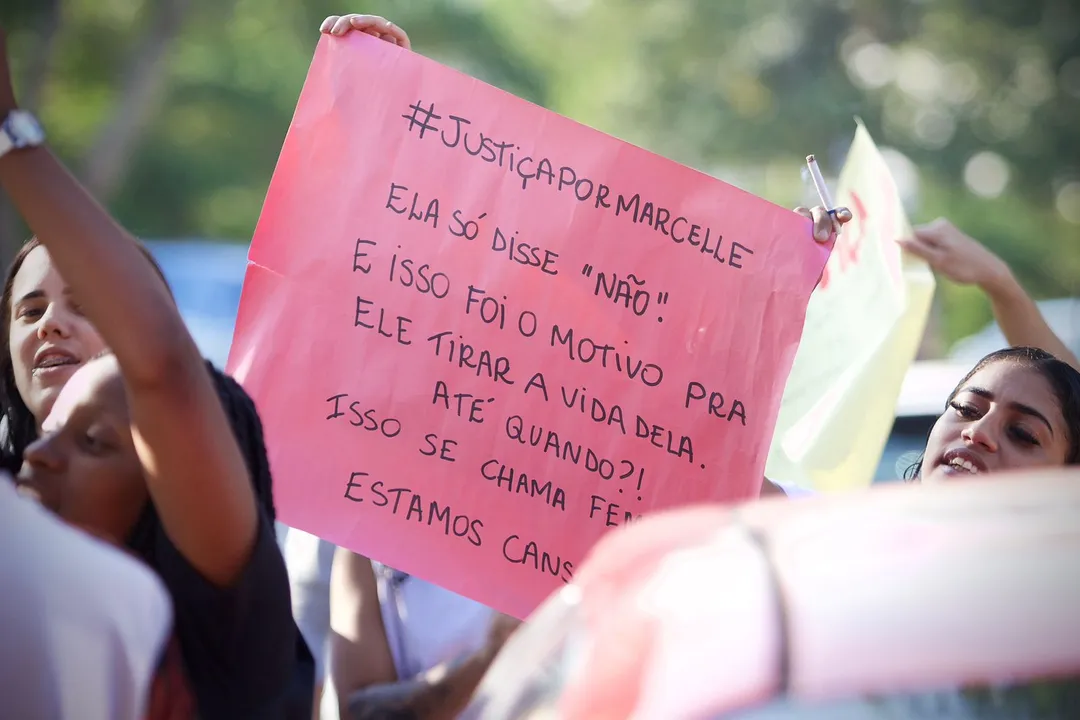 #JUSTIÇAPORMARCELLE
ELA SÓ DISSE "NÃO"!
E ISSO FOI O MOTIVO PRA
ELE TIRAR A VIDA DELA.
ATÉ QUANDO?!
ISSO SE CHAMA
ESTAMOS